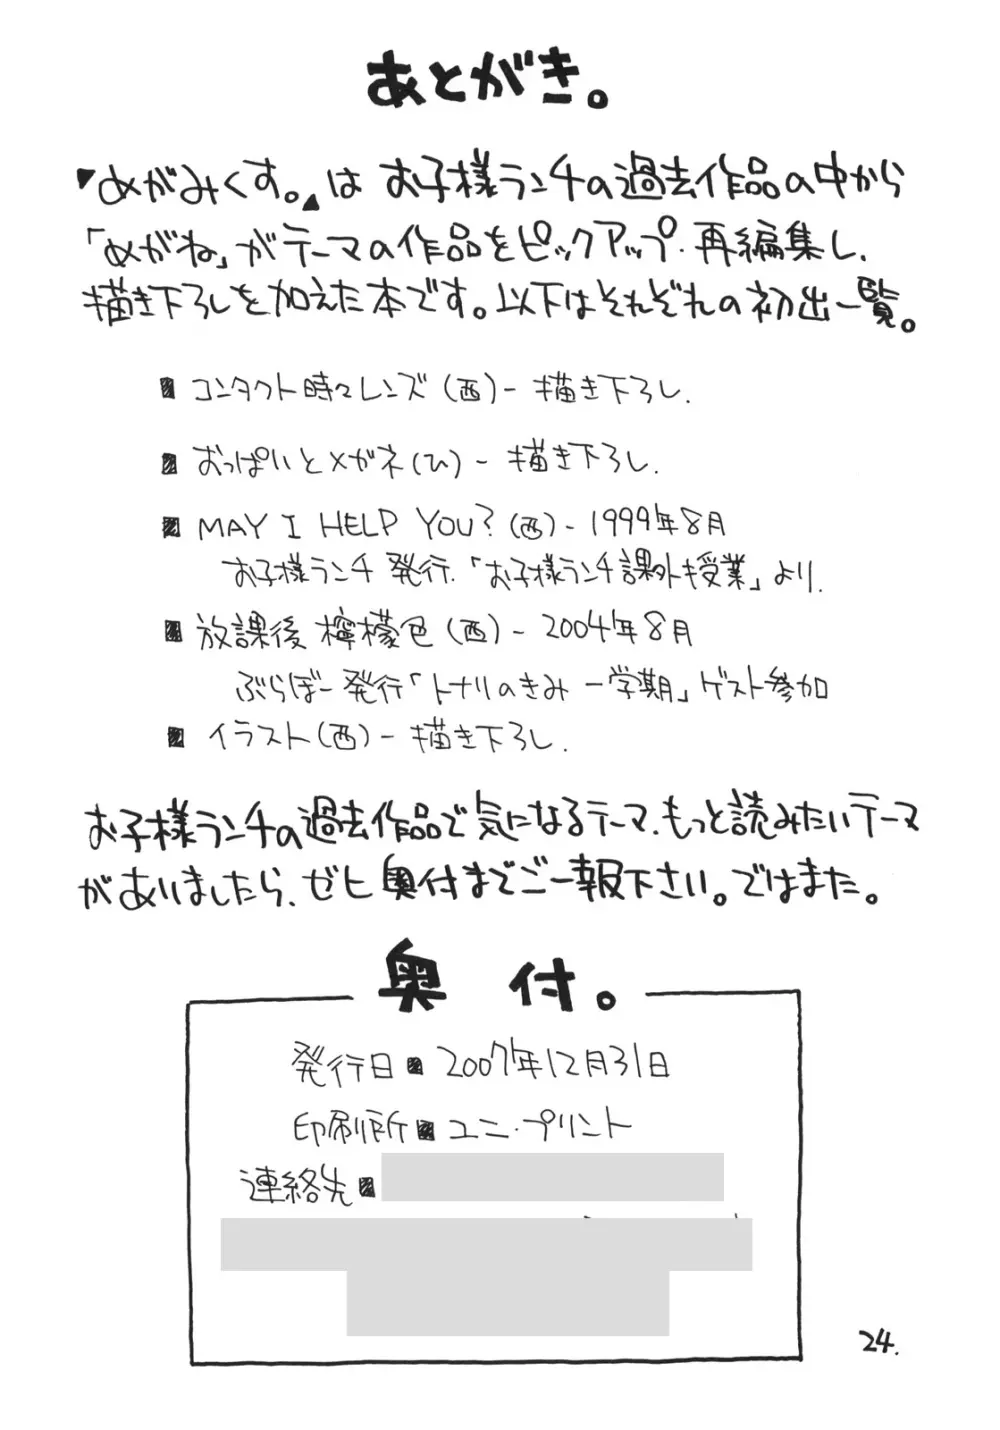 あとがき。
『めがみくす。』は お子様ランチの過去作品の中から
「めがね」がテーマの作品をピックアップ・再編集し、
描き下ろしを加えた本です。以下はそれぞれの初出一覧。
■ コンタクト時々レンズ(西)- 描き下ろし.
■ おっぱいとメガネ(ひ)- 描き下ろし.
■ MAY I HELP YOU?(西)- 1999年8月
お子様ランチ 発行.「お子様ランチ課外授業」より.
■ 放課後 檸檬色(西)- 2004年8月
ぶらぼー 発行「トナリのきみ 一学期」ゲスト参加
■ イラスト(西)- 描き下ろし.
お子様ランチの過去作品で気になるテーマ、もっと読みたいテーマ
がありましたら、ゼヒ奥付までご一報下さい。ではまた。
奥 付。
発行日■ 2007年12月31日
印刷所■ ユニ・プリント
連絡先■
24.